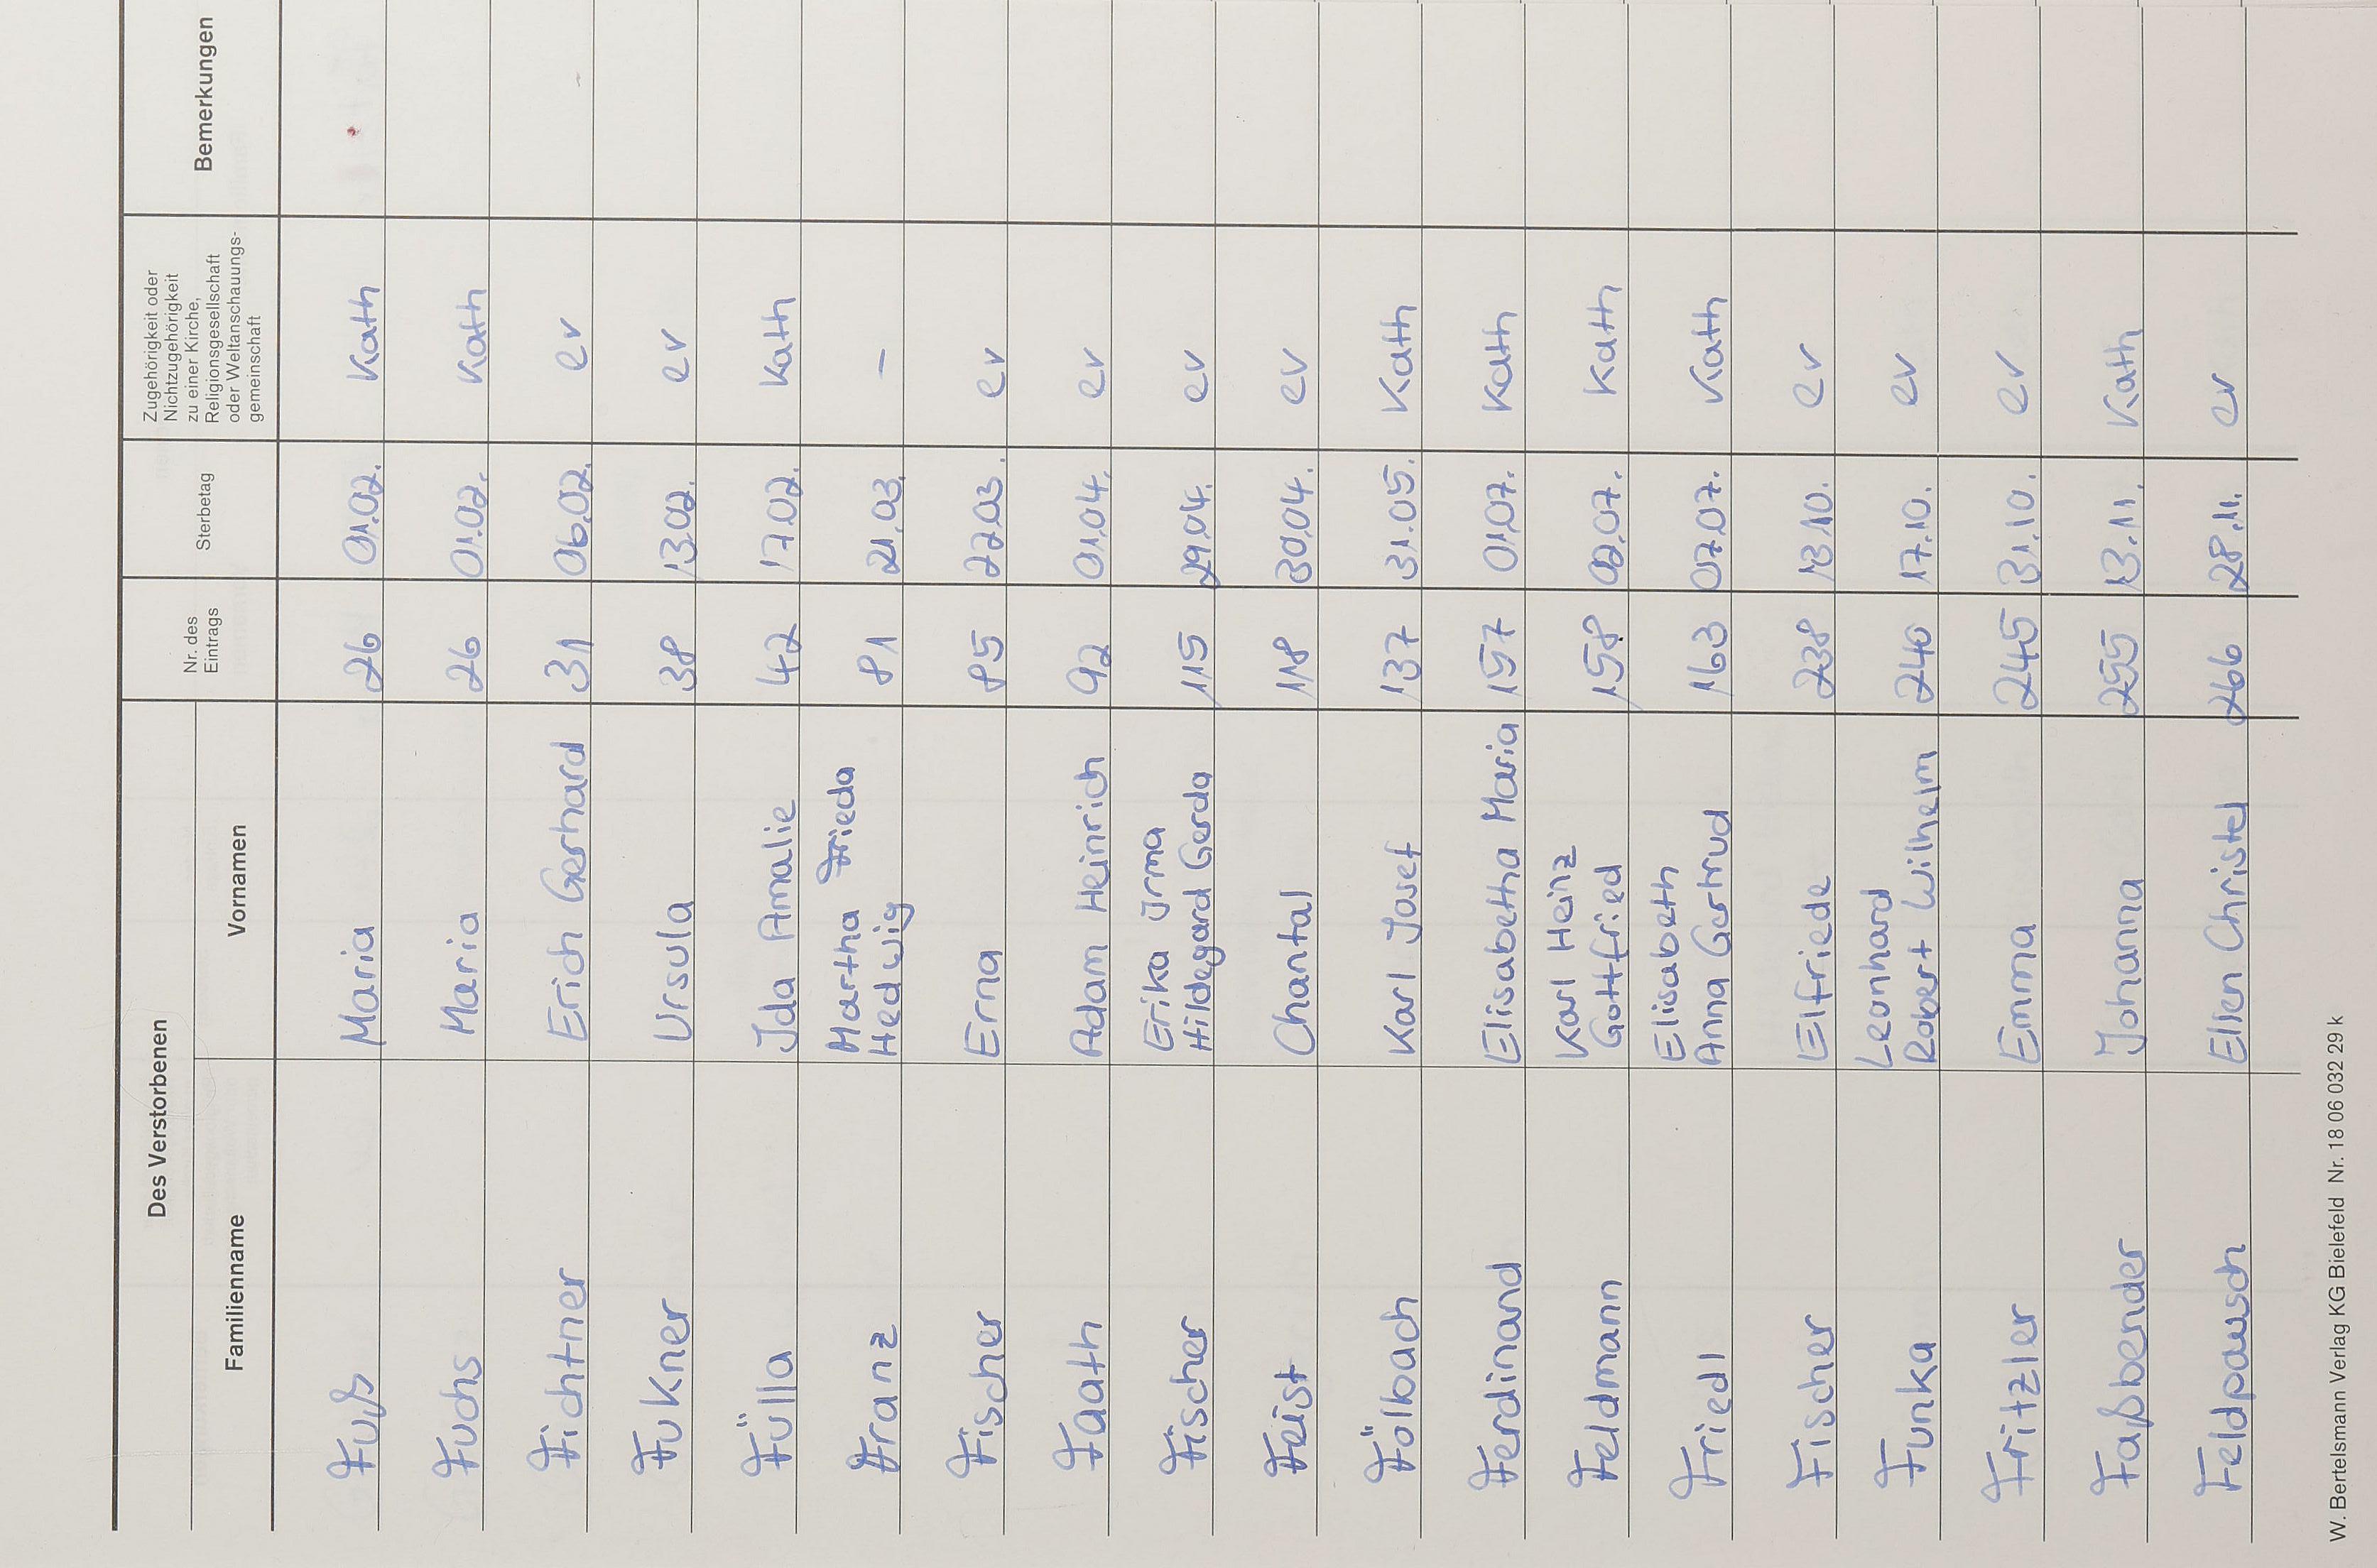 Des Verstorbenen
Familienname Vornamen Nr. des Eintrags Sterbetag Zugehörigkeit oder Nichtzugehörigkeit zu einer Kirche, Religionsgesellschaft oder Weltanschauungs-gemeinschaft Bemerkungen
Fuß Maria 26 01.02. Kath
Fuchs Maria 26 01.02. Kath
Fichtner Erich Gerhard 31 06.02. ev
Fukner Ursula 38 13.02. ev
Fülla Ida Amalie 42 17.02. Kath
Martha Frieda
Franz Hedwig 81 21.03. –
Fischer Erna 85 22.03. ev
Faath Adam Heinrich 92 01.04. ev
Erika Irma
Fischer Hildegard Gerda 115 29.04. ev
Feist Chantal 118 30.04. ev
Fölbach Karl Josef 137 31.05. Kath
Ferdinand Elisabetha Maria 157 01.07. Kath
Karl Heinz
Feldmann Gottfried 158 02.07. Kath
Elisabeth
Friedl Anna Gertrud 163 07.07. Kath
Fischer Elfriede 238 13.10. ev
Leonhard
Funka Robert Wilhelm 240 17.10. ev
Fritzler Emma 245 31.10. ev
Faßbender Johanna 255 13.11. Kath
Feldpausch Ellen Christel 266 28.11. ev
W. Bertelsmann Verlag KG Bielefeld Nr. 18 06 032 29 k